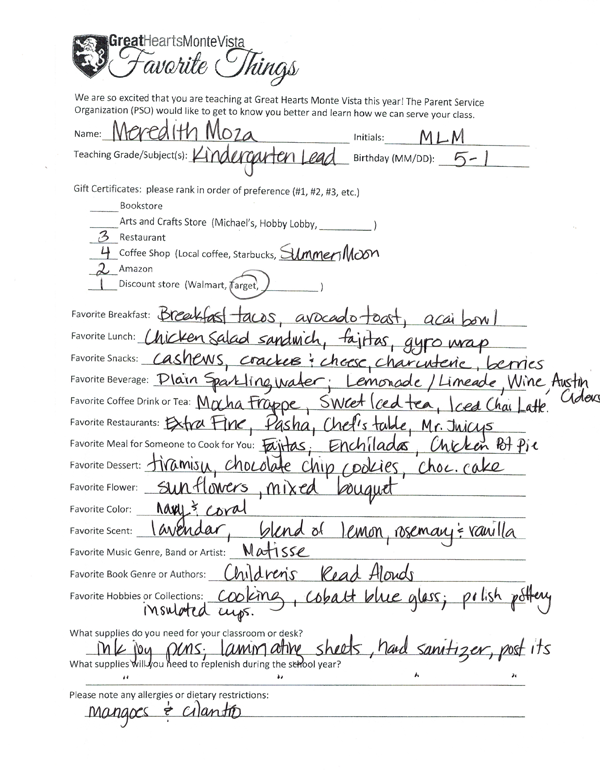 GreatHeartsMonteVista
Favorite Things
We are so excited that you are teaching at Great Hearts Monte Vista this year! The Parent Service
Organization (PSO) would like to get to know you better and learn how we can serve your class.
Name: Meredith Moza Initials: MLM
Teaching Grade/Subject(s): Kindergarten Lead Birthday (MM/DD): 5-1
Gift Certificates: please rank in order of preference (#1, #2, #3, etc.)
Bookstore
Arts and Crafts Store (Michael's, Hobby Lobby, )
3 Restaurant
4 Coffee Shop (Local coffee, Starbucks, Summer Moon
2 Amazon
1 Discount store (Walmart, Target, )
Favorite Breakfast: Breakfast tacos, avocado toast, acai bowl
Favorite Lunch: Chicken Salad sandwich, fajitas, gyro wrap
Favorite Snacks: cashews, crackers & cheese, charcuterie, berries
Favorite Beverage: Plain Sparkling water; Lemonade / Limeade, Wine, Austin Ciders
Favorite Coffee Drink or Tea: Mocha Frappe, Sweet Iced tea, Iced Chai Latte.
Favorite Restaurants: Extra Fine, Pasha, Chef's table, Mr. Juicys
Favorite Meal for Someone to Cook for You: Fajitas, Enchiladas, Chicken Pot Pie
Favorite Dessert: tiramisu, chocolate chip cookies, choc. cake
Favorite Flower: sunflowers, mixed bouquet
Favorite Color: Navy & coral
Favorite Scent: lavendar, blend of lemon, rosemary & vanilla
Favorite Music Genre, Band or Artist: Matisse
Favorite Book Genre or Authors: Children's Read Alouds
Favorite Hobbies or Collections: cooking, cobalt blue glass; polish pottery
insulated cups.
What supplies do you need for your classroom or desk?
ink joy pens, laminating sheets, hand sanitizer, post its
What supplies will you need to replenish during the school year?
" " " "
Please note any allergies or dietary restrictions:
mangoes & cilantro